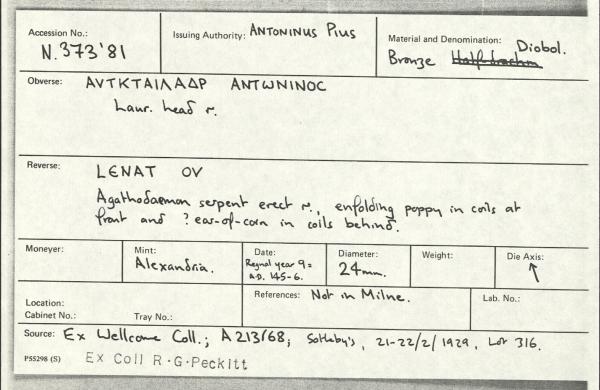 Accession No.: N.373'81
Issuing Authority: ANTONINUS PIUS
Material and Denomination: Diobol.
Bronze Half-drachm
Obverse: ΑVΤΚΤΑΙΛΑΔΡ ΑΝΤωΝΙΝΟC
Laur. head r.
Reverse: LENAT OV
Agathodaemon serpent erect r., enfolding poppy in coils at
front and ? ear-of-corn in coils behind.
Moneyer:
Mint: Alexandria.
Date: Regnal year 9 =
A.D. 145-6.
Diameter: 24mm.
Weight:
Die Axis: ↖
Location:
Cabinet No.: Tray No.:
References: Not in Milne.
Lab. No.:
Source: Ex Wellcome Coll.; A213/68; Sotheby's, 21-22/2/1929, Lot 316.
P55298 (S) Ex Coll R.G.Peckitt